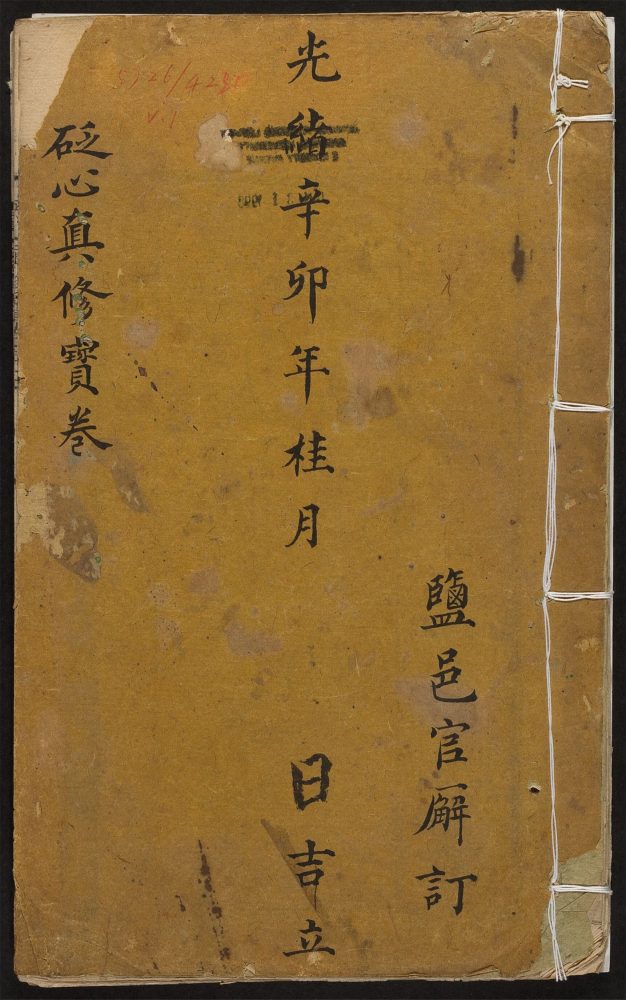 鹽邑官廨訂
光緒辛卯年桂月 日吉立
砭心真修寳卷
V.1